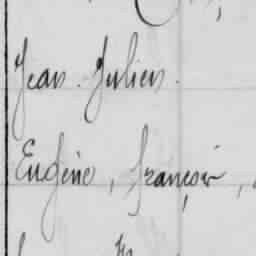 Jean Julien.
Eugène, François,